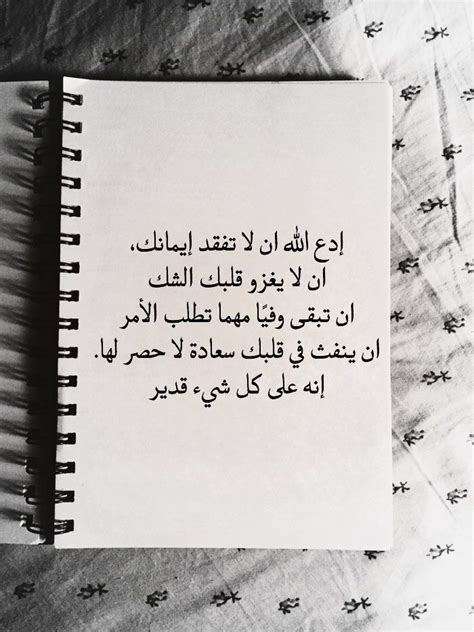 إدع الله ان لا تفقد إيمانك،
ان لا يغزو قلبك الشك
ان تبقى وفيًا مهما تطلب الأمر
ان ينفث في قلبك سعادة لا حصر لها.
إنه على كل شيء قدير